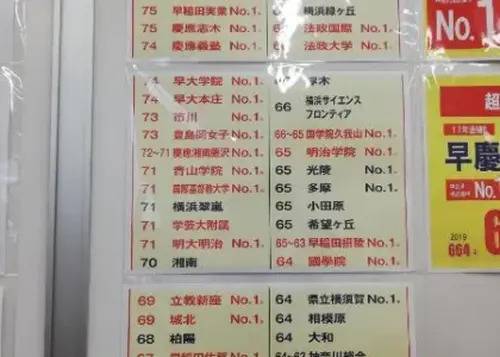 75 早稲田実業 No.1※
75 慶應志木 No.1※
74 慶應義塾 No.1※
横浜緑ヶ丘
法政国際 No.1※
64 法政大学 No.1※
74 早大学院 No.1※
74 早大本庄 No.1※
73 市川 No.1※
73 豊島岡女子 No.1※
72~71 慶應湘南藤沢 No.1※
71 青山学院 No.1※
71 国際基督教大学 No.1※
71 横浜翠嵐
71 学芸大附属
71 明大明治 No.1※
70 湘南
厚木
66 横浜サイエンス
フロンティア
66~65 国学院久我山 No.1※
65 明治学院 No.1※
65 光陵
65 多摩
65 小田原
65 希望ヶ丘
65~63 早稲田摂陵 No.1※
64 國學院 No.1※
69 立教新座 No.1※
69 城北 No.1※
68 柏陽
64 県立横須賀 No.1※
64 相模原
64 大和
神奈川総合
No.1
超
早慶
No.1
2019
664